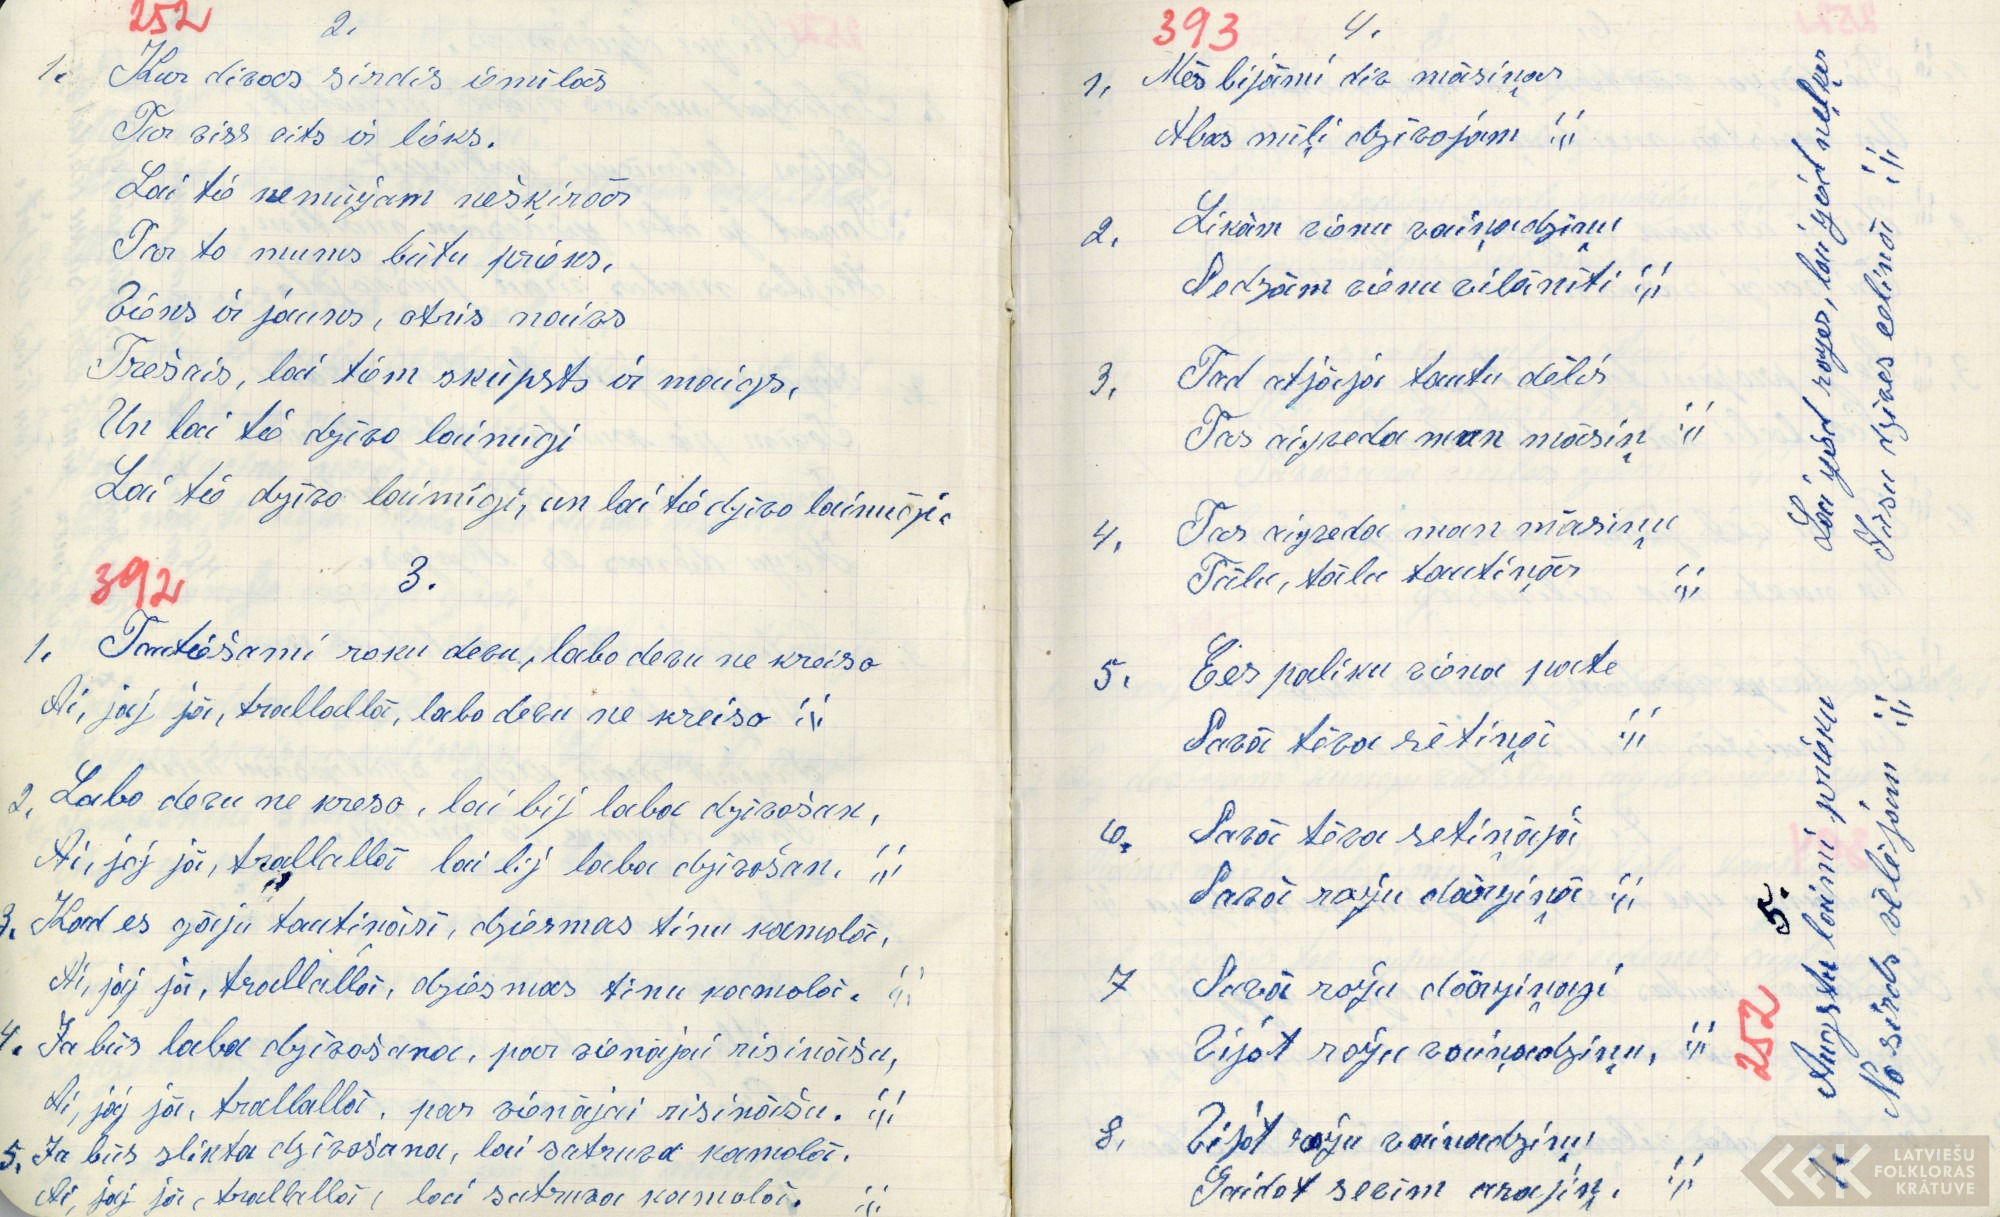 252
2.
1. Kur divas sirdis iemīlās
Tar viss cits ir lieks.
Lai tie nemūžam nešķirās
Par to mums būtu prieks.
Viens ir jauns, otris naivs
Trešais, lai tiem skūpsts ir maigs,
Un lai tie dzīvo laimīgi
Lai tie dzīvo laimīgi, un lai tie dzīvo laimīgi.
392
3.
1. Tautiešami roku devu, labo devu ne kreiso
Ai, jaj jā, trallallā, labo devu ne kreiso :,:
2. Labo devu ne kreso, lai bij laba dzīvošan,
Ai, jaj jā, trallallā lai bij laba dzīvošan. :,:
3. Kad es gāju tautināsi, dziesmas tinu kamolā,
Ai, jaj jā, trallallā, dziesmas tinu kamolā. :,:
4. Ja būs laba dzīvošana, par vienājai risināšu,
Ai, jaj jā, trallallā, par vienājai risināšu. :,:
5. Ja būs slikta dzīvošana, lai satruva kamolā.
Ai, jaj jā, trallallā, lai satruva kamolā. :,:
393
4.
1, Mēs bijāmi div māsiņas
Abas mīļi dzīvojām :,:
2. Likām vienu vaiņadziņu
Sedzām vienu vilānīti :,:
3. Tad atjāja tautu dēlis
Tas aizveda man māsiņ :,:
4. Tas aizveda man māsiņu
Tālu, tālu tautiņās :,:
5. Ees paliku viena pate
Savā tēva sētiņā :,:
6. Savā tēva setiņājā
Savā rožu dārziņā :,:
7 Savā rožu dārziņaji
Vijot rožu vaiņadziņu, :,:
8. Vijot rožu vaiņadziņu
Gaidot sevim arajiņ. :,:
252
5.
1. Augstu laimi prieku
No sirds vēlējam :,:
Lai zied rozes, lai zied neļķes
Jūsu dzīves celiņā :,:
LATVIEŠU
FOLKLORAS
KRĀTUVE